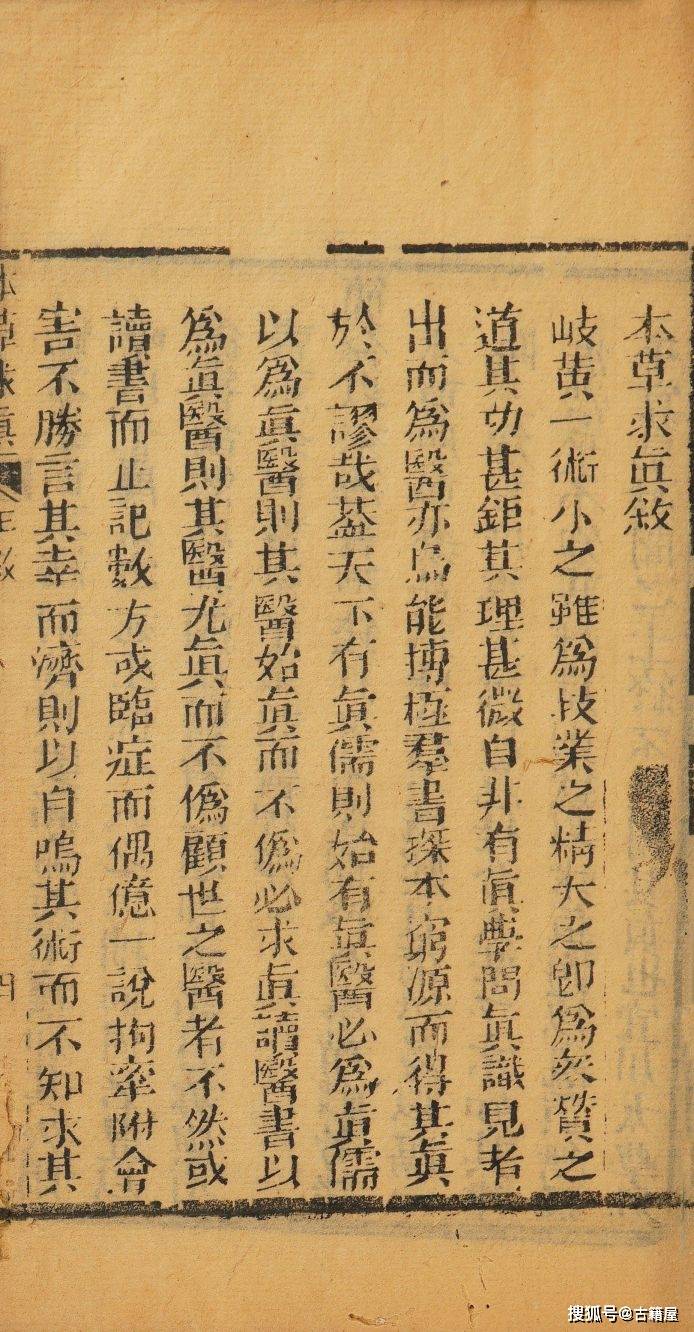 本草求眞敘
岐黃一術小之雖爲技業之精大之卽爲叅賛之
道其功甚鉅其理甚微自非有眞學問眞識見者
出而爲醫亦烏能博極羣書探本窮源而得其眞
於不謬哉葢天下有眞儒則始有眞醫必爲眞儒
以爲眞醫則其醫始眞而不僞必求眞讀醫書以
爲眞醫則其醫尤眞而不僞顧世之醫者不然或
讀書而止記數方或臨症而偶億一說拘牽附會
害不勝言其幸而濟則以自鳴其術而不知求其
本草求眞
四
搜狐号@古籍屋